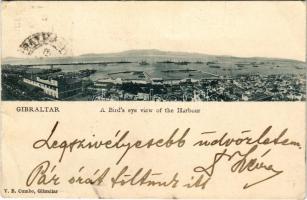 GIBRALTAR
A Bird's eye view of the Harbour
Legszivélyesebb üdvözletem
Pár órát töltünk itt
V. B. Cumbo, Gibraltar